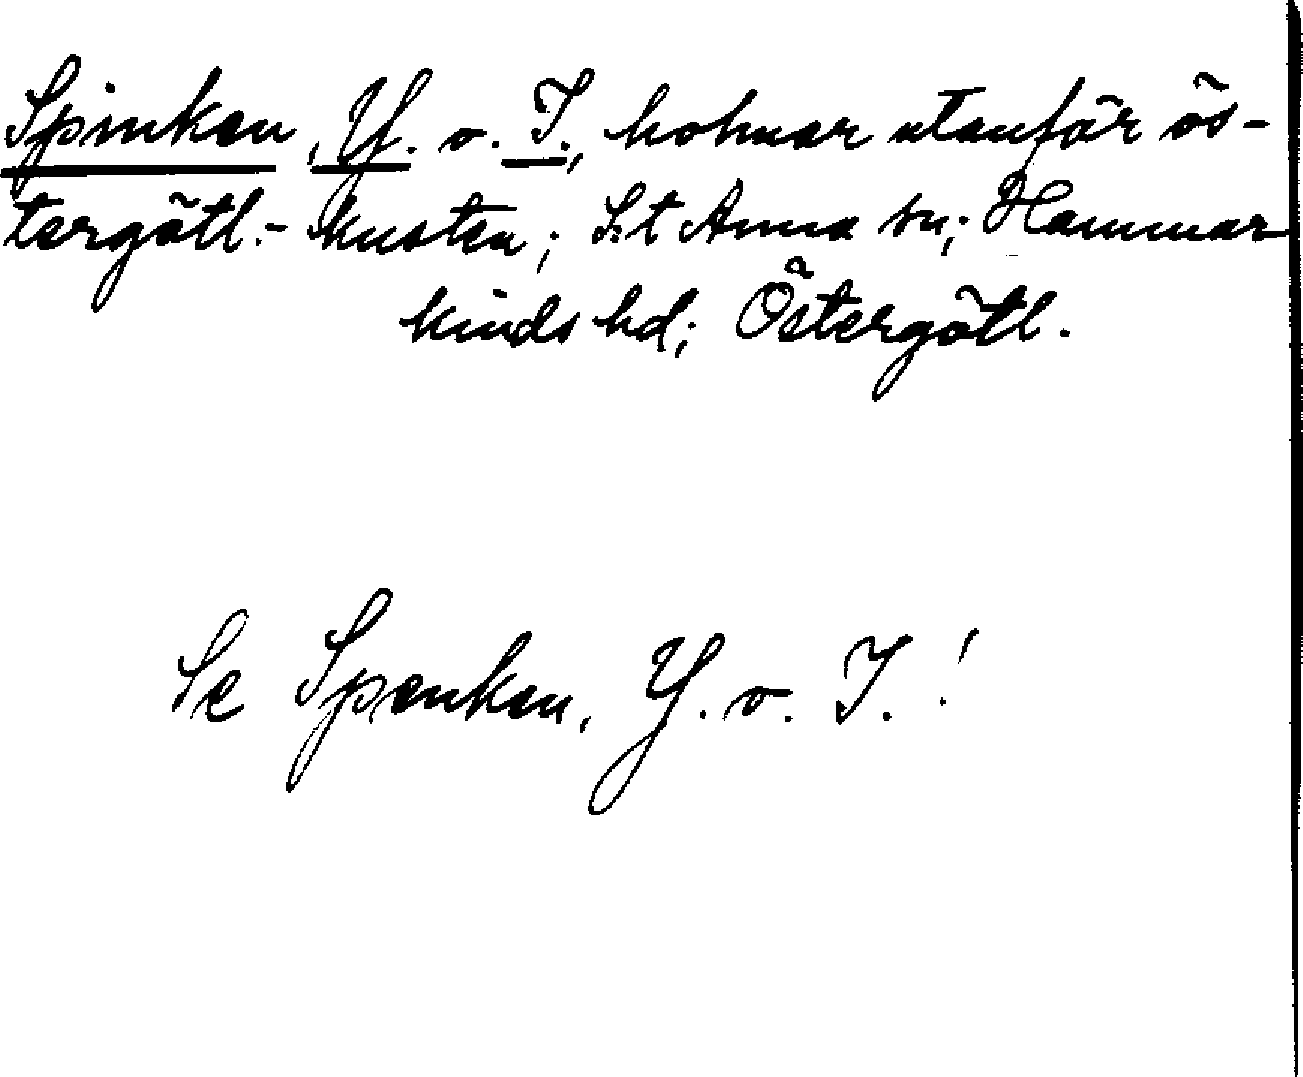 Spinken, Y. o. I., holmar utanför ös-
tergötl.- kusten; S:t Anna sn; Hammar
kinds hd; Östergötl.
Se Spenken, Y. o. I.!